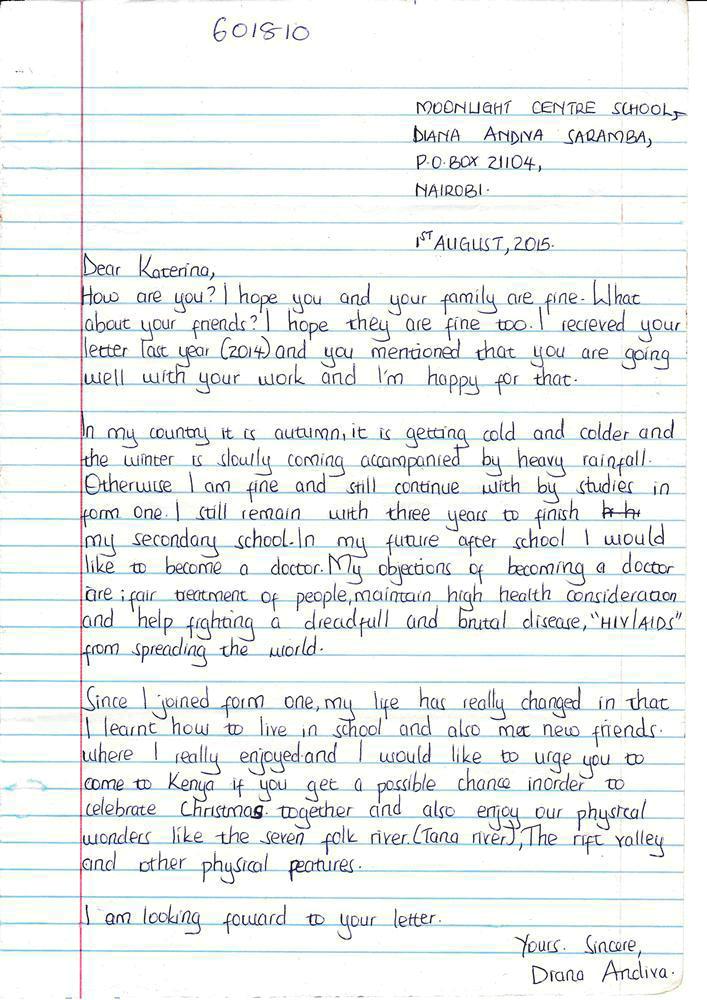 601810
MOONLIGHT CENTRE SCHOOL,
DIANA ANDIVA SARAMBA,
P.O.BOX 21104,
NAIROBI.
1ST AUGUST, 2015.
Dear Katerina,
How are you? I hope you and your family are fine. What
about your friends? I hope they are fine too. I recieved your
letter last year (2014) and you mentioned that you are going
well with your work and I'm happy for that.
In my country it is autumn, it is getting cold and colder and
the winter is slowly coming accompanied by heavy rainfall.
Otherwise I am fine and still continue with by studies in
form one. I still remain with three years to finish
my secondary school. In my future after school I would
like to become a doctor. My objections of becoming a doctor
are; fair treatment of people, maintain high health consideration
and help fighting a dreadfull and brutal disease, "HIV/AIDS"
from spreading the world.
Since I joined form one, my life has really changed in that
I learnt how to live in school and also met new friends.
where I really enjoyed and I would like to urge you to
come to Kenya if you get a possible chance inorder to
celebrate Christmas together and also enjoy our physical
wonders like the seven folk river. (Tana river), The rift valley
and other physical features.
I am looking foward to your letter.
Yours. Sincere,
Diana Andiva.